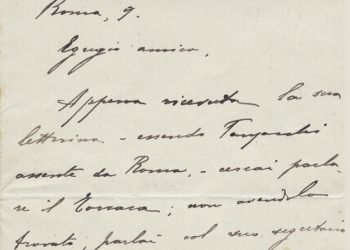 Roma, 9.
Egregio amico,
Appena ricevuta la sua
letterina - essendo
assente da Roma - cercai parla
re il Torraca; non avendolo
trovato, parlai col suo segretario